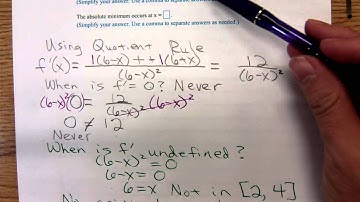 (Simplify your answer. Use a comma to separate answers as needed.)
The absolute minimum occurs at x = .
(Simplify your answer. Use a comma to separate answers as needed.)
Using Quotient Rule
f'(x) = 1(6-x)++1(6+x) / (6-x)² = 12 / (6-x)²
When is f' = 0? Never
(6-x)²(0) = 12 / (6-x)² (6-x)²
0 ≠ 12
Never
When is f' undefined?
(6-x)² = 0
6-x = 0
6=x Not in [2, 4]